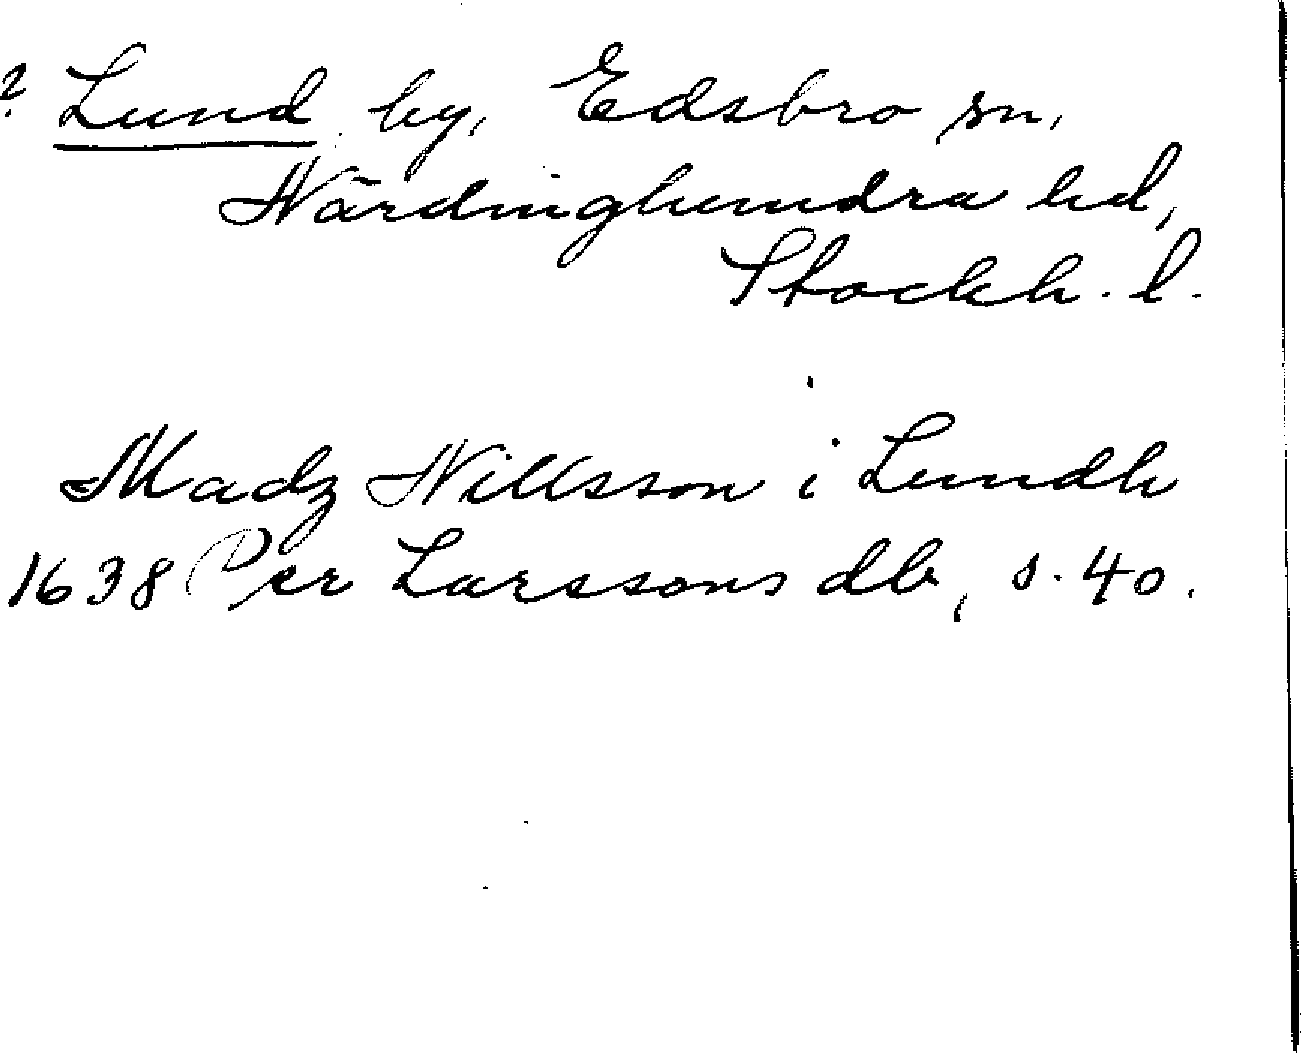 ? Lund by, Edsbro sn,
Närdinghundra hd,
Stockh. l.
Madz Nillsson i Lundh
1638 Per Larssons db, s. 40.